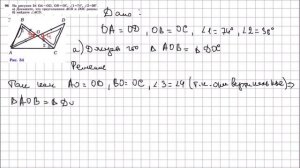 98 На рисунке 54 OA = OD, OB = OC, ∠1 = 74°, ∠2 = 36°.
а) Докажите, что треугольники AOB и DOC равны;
Рис. 54
Дано:
OA = OD, OB = OC, ∠1 = 74°, ∠2 = 36°
а) Докаж что ΔAOB = ΔDOC
Решение
Так как AO = OD, BO = OC, ∠3 = ∠4 (т.к. они вертикальные)
⇒ ΔAOB = ΔD